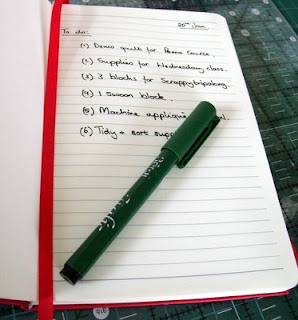 Jan.
To do:
(1) Demo quilt for course.
(2) Supplies for Wednesday class.
(3) 3 blocks for Scrappytripalong.
(4) 1 swoon block.
(5) Machine appliqué
(6) Tidy + sort